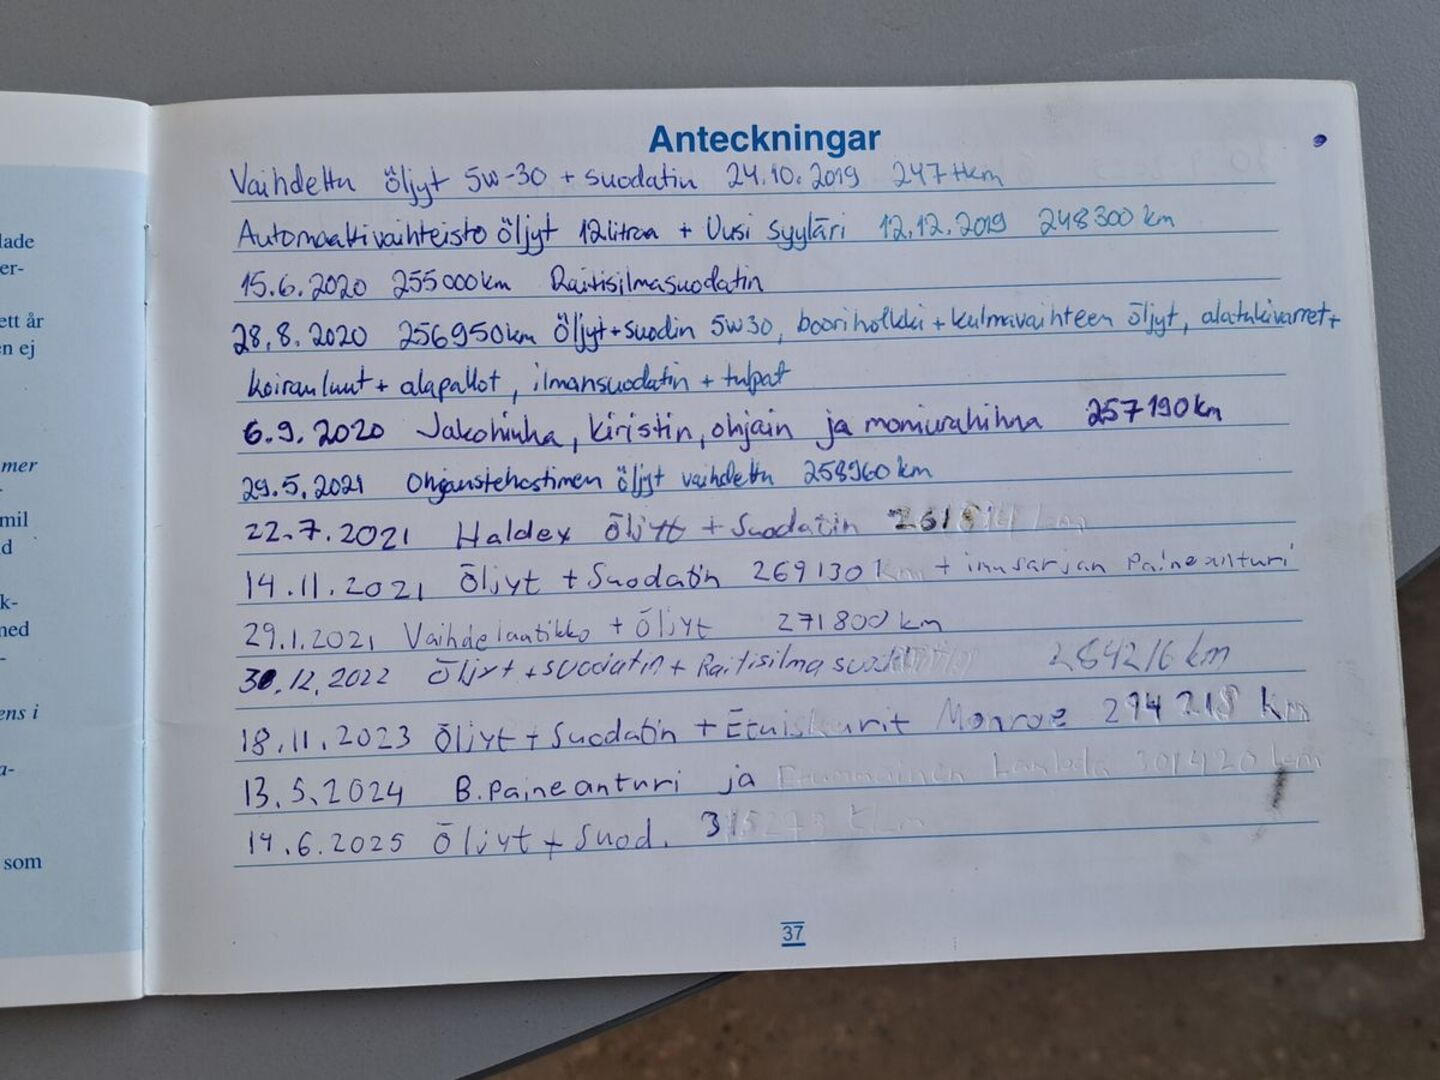 lade
er-
ett år
en ej
mer
-
mil
d
k-
ned
-
ens i
a-
som
Anteckningar
Vaihdettu öljyt 5w-30 + suodatin 24.10.2019 247tkm
Automaattivaihteisto öljyt 12litraa + Uusi syyläri 12.12.2019 248300km
15.6.2020 255000km Raitisilmasuodatin
28.8.2020 256950km öljyt+suodin 5w30, booriholkki+kulmavaihteen öljyt, alatukivarret+
koiranluut+ alapallot, ilmansuodatin + tulpat
6.9.2020 Jakohihna, kiristin, ohjain ja moniurahihna 257190km
29.5.2021 Ohjaustehostimen öljyt vaihdettu 258960km
22.7.2021 Haldex öljyt + Suodatin km
14.11.2021 Öljyt + Suodatin 269130 km + imusarjan Paineanturi
29.1.2021 Vaihdelaatikko + Öljyt 271800km
30.12.2022 Öljyt + suodatin + Raitisilma suodatin 284216 km
18.11.2023 Öljyt + Suodatin + Etuiskarit Monroe 294218 km
13.5.2024 B.Paineanturi ja Etummainen Lambda 301420 km
14.6.2025 Öljyt + Suod.
37